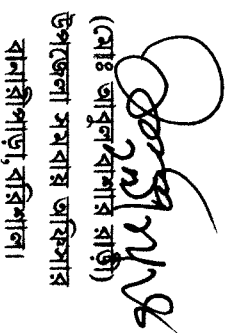 (মোঃ আবুল বাশার রাঢ়ী)
উপজেলা সমবায় অফিসার
বানারীপাড়া, বরিশাল।